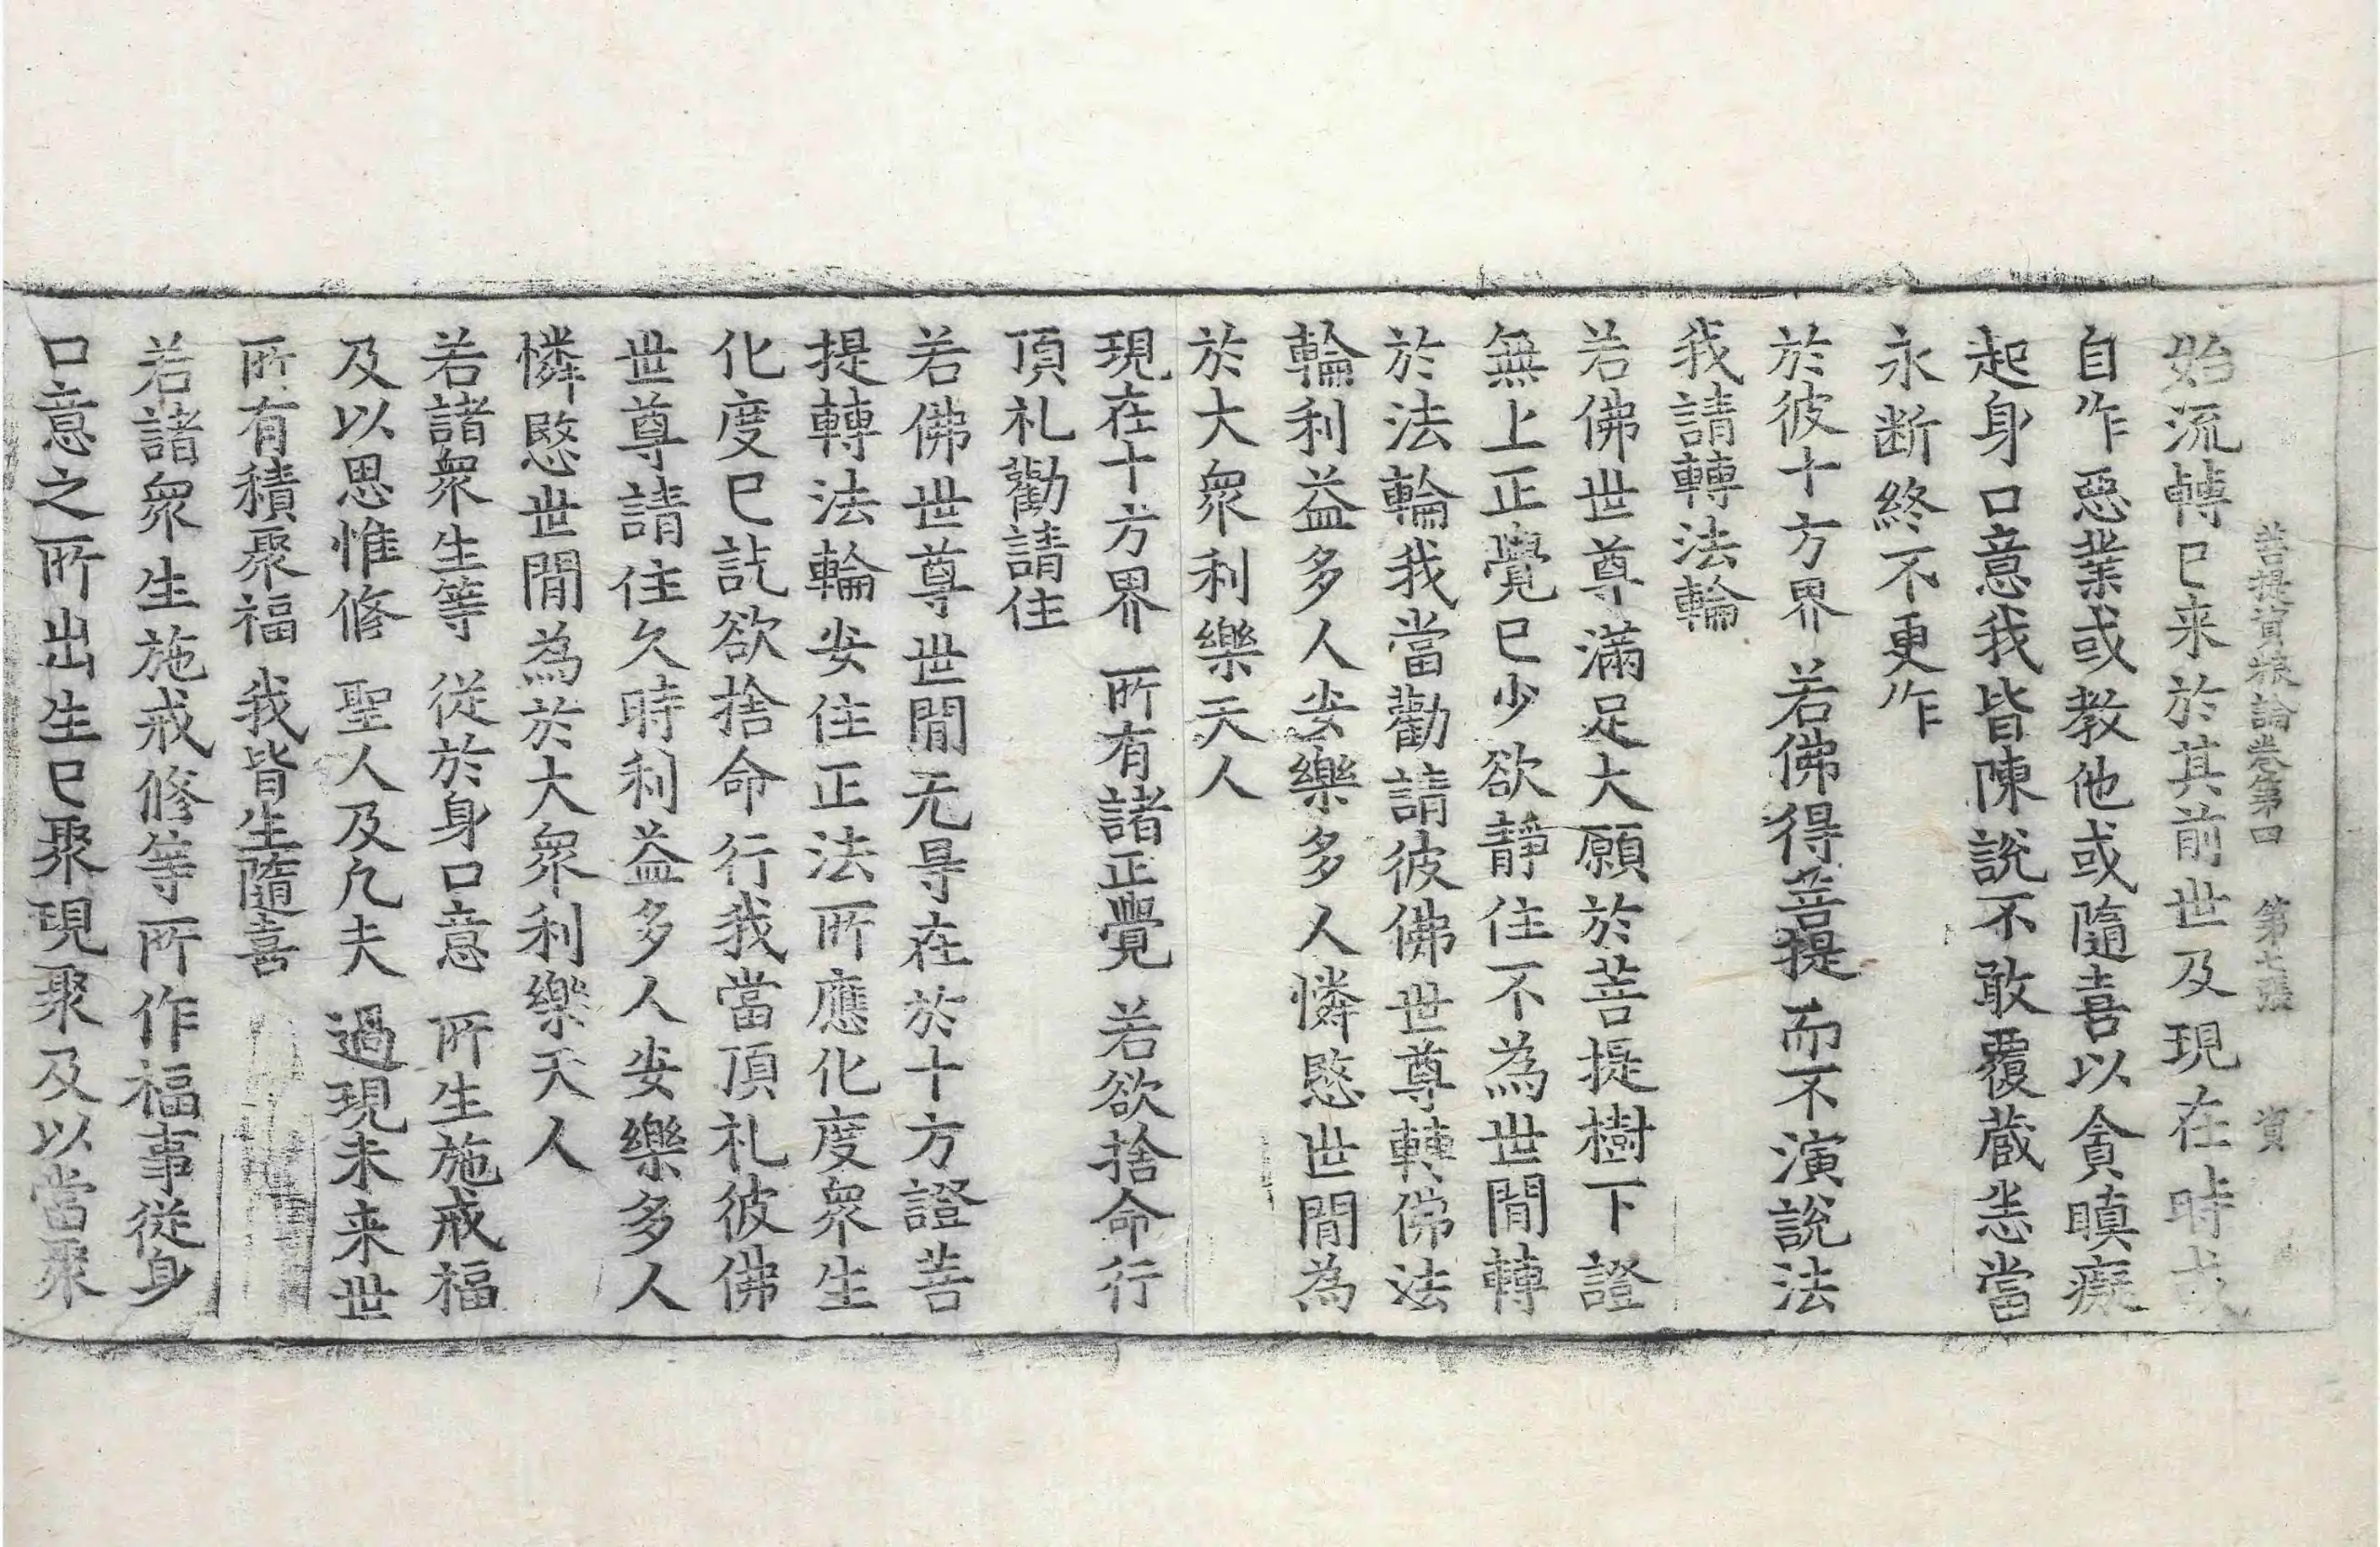 菩提資粮論卷第四 第七張 資
始流轉已来於其前世及現在時或
自作惡業或教他或隨喜以貪瞋癡
起身口意我皆陳說不敢覆蔵恙當
永断終不更作
於彼十方界 若佛得菩提 而不演說法
我請轉法輪
若佛世尊滿足大願於菩提樹下證
無上正覺已少欲靜住不為世閒轉
於法輪我當勸請彼佛世尊轉佛法
輪利益多人安樂多人憐愍世閒為
於大衆利樂天人
現在十方界 所有諸正覺 若欲捨命行
頂礼勸請住
若佛世尊世閒无㝵在於十方證菩
提轉法輪安住正法所應化度衆生
化度已訖欲捨命行我當頂礼彼佛
世尊請住久時利益多人安樂多人
憐愍世閒為於大衆利樂天人
若諸衆生等 從於身口意 所生施戒福
及以思惟修 聖人及凡夫 過現未来世
所有積聚福 我皆生隨喜
若諸衆生施戒修等所作福事從身
口意之所出生已聚現聚及以當聚